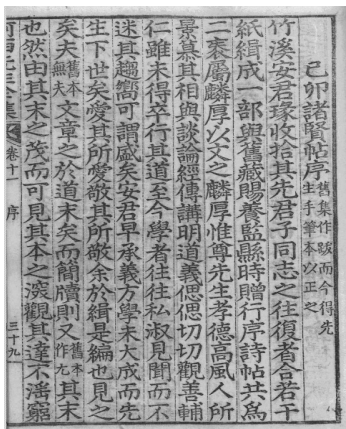 己卯諸賢帖序 舊集作跋而今得先
生手筆本以正之
竹溪安君瑑收拾其先君子同志之往復者合若干
紙緝成一部與舊藏賜養監縣時贈行序詩帖共爲
二袠屬麟厚以文之麟厚惟尊先生孝德高風人所
景慕其相與談論經傳講明道義偲偲切切觀善輔
仁雖未得卒行其道至今學者往往私淑見聞而不
迷其趨嚮可謂盛矣安君早承義方學未大成而先
生下世矣愛其所愛敬其所敬余於緝是編也見之
矣夫舊本無夫文章之於道末矣而簡牘則又舊本作尤其末
也然由其末之茂而可見其本之深觀其達不淫窮
河西先生全集 卷十一 序 三十九